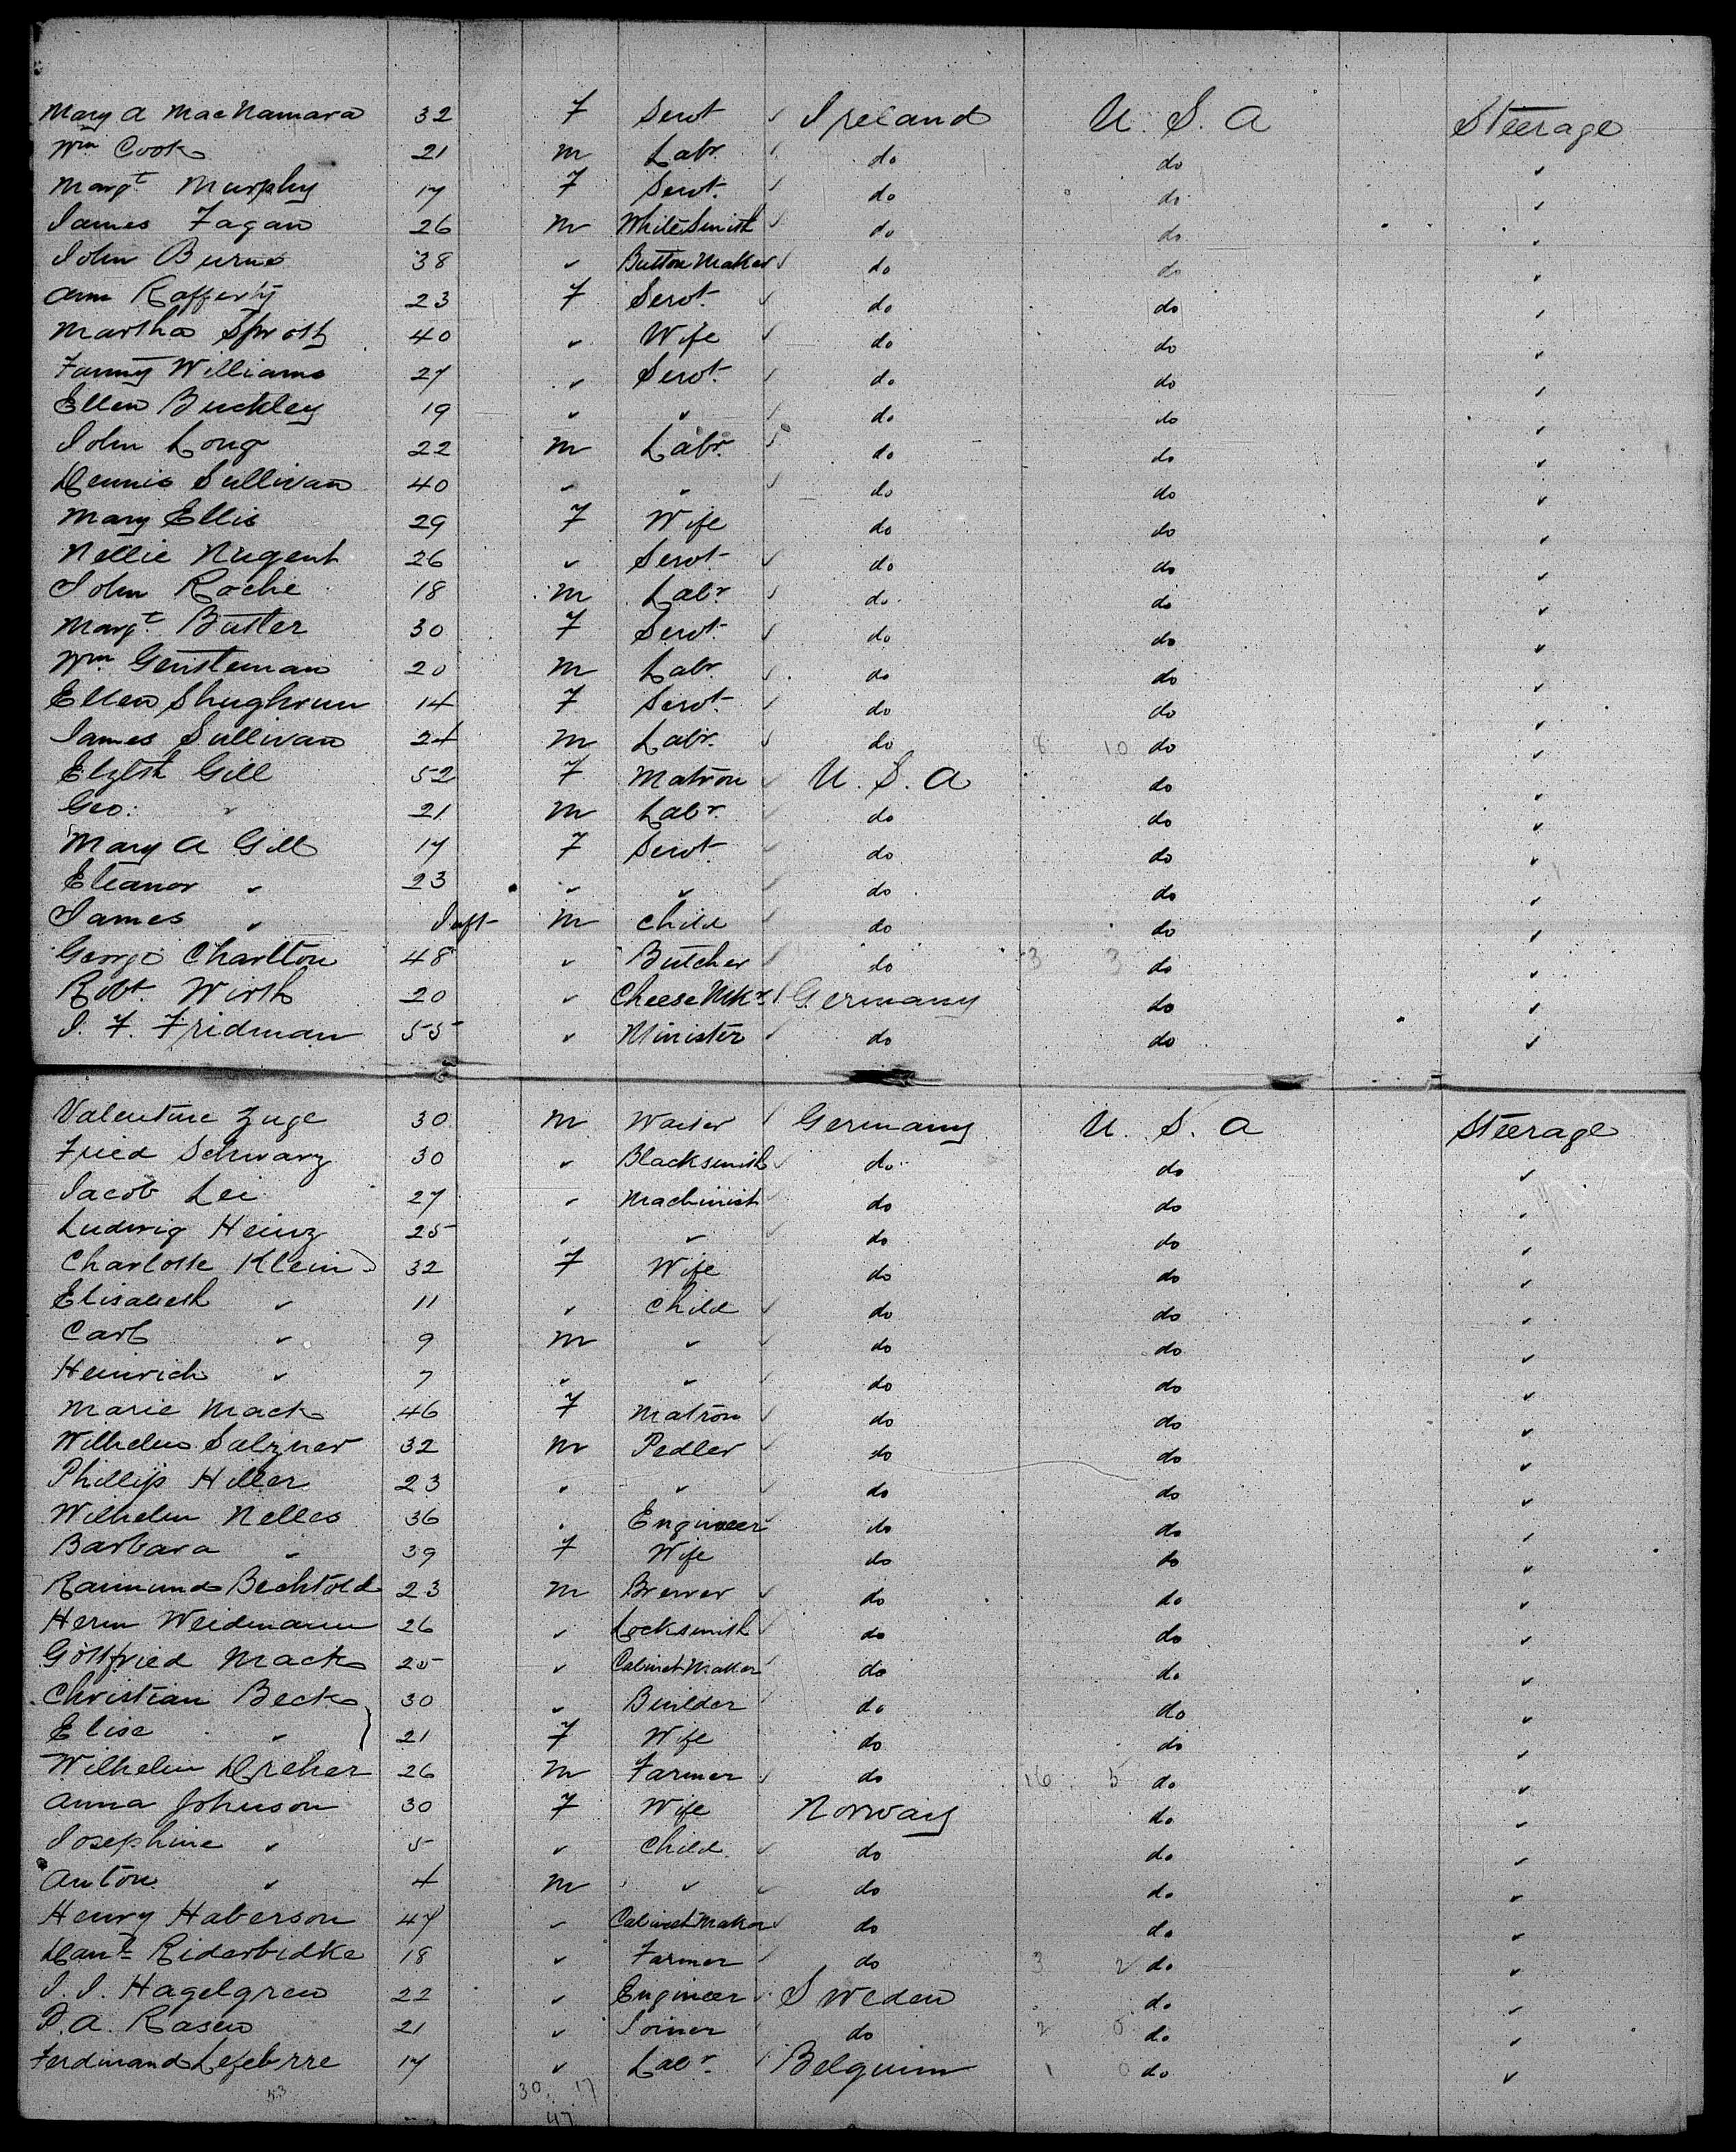 Mary A MacNamara 32 F Servt Ireland U.S.A Steerage
Wm Cook 21 M Labr. do do "
Margt Murphy 17 F Servt. do do "
James Fagan 26 M WhiteSmith do do "
John Burns 38 " Button Maker do do "
Ann Rafferty 23 F Servt. do do "
Martha 40 " Wife do do "
Fanny Williams 27 " Servt. do do "
Ellen Buckley 19 " " do do "
John Long 22 M Labr. do do "
Dennis Sullivan 40 " " do do "
Mary Ellis 29 F Wife do do "
Nellie Nugent 26 " Servt. do do "
John Roche 18 M Labr. do do "
Margt. Butler 30 F Servt. do do "
Wm Gentleman 20 M Labr. do do "
Ellen Shughrun 14 F Servt. do do "
James Sullivan 24 M Labr. do 8 10 do "
Elzbth Gill 52 F Matron U.S.A do "
Geo: " 21 M Labr. do do "
Mary A Gill 17 F Servt. do do "
Eleanor " 23 " " do do "
James " Inft M Child do do "
George Charlton 48 " Butcher do 3 3 do "
Robt. Wirth 20 " Cheese Mkr. Germany do "
J. F. Fridman 55 " Minister do do "
Valentine Zuge 30 M Waiter Germany U.S.A Steerage
Fried Schwarz 30 " Blacksmith do do "
Jacob Lei 27 " Machinist do do "
Ludwig Heinz 25 " " do do "
Charlotte Klein 32 F Wife do do "
Elisabeth " 11 " Child do do "
Carl " 9 M " do do "
Heinrich " 7 " " do do "
Marie Mack 46 F Matron do do "
Wilhelm Salzner 32 M Pedler do do "
Phillip Hiller 23 " " do do "
Wilhelm Nelles 36 " Engineer do do "
Barbara " 39 F Wife do do "
Raimund Bechtold 23 M Brewer do do "
Herm Weidmann 26 " Locksmith do do "
Gottfried Mack 25 " Cabinet Maker do do "
Christian Beck 30 " Builder do do "
Elise " 21 F Wife do do "
Wilhelm Dreher 26 M Farmer do 16 5 do "
Anna Johnson 30 F Wife Norway do "
Josephine " 5 " Child do do "
Anton " 4 M " do do "
Henry Haberson 47 " Cabinet Maker do do "
Danl. Riderbidke 18 " Farmer do 3 2 do "
J. J. Hagelgren 22 " Engineer Sweden do "
P. A. Rasen 21 " Joiner do 2 0 do "
Ferdinand Lefebrre 17 " Labr. Belguim 1 0 do "
53 30 17
47